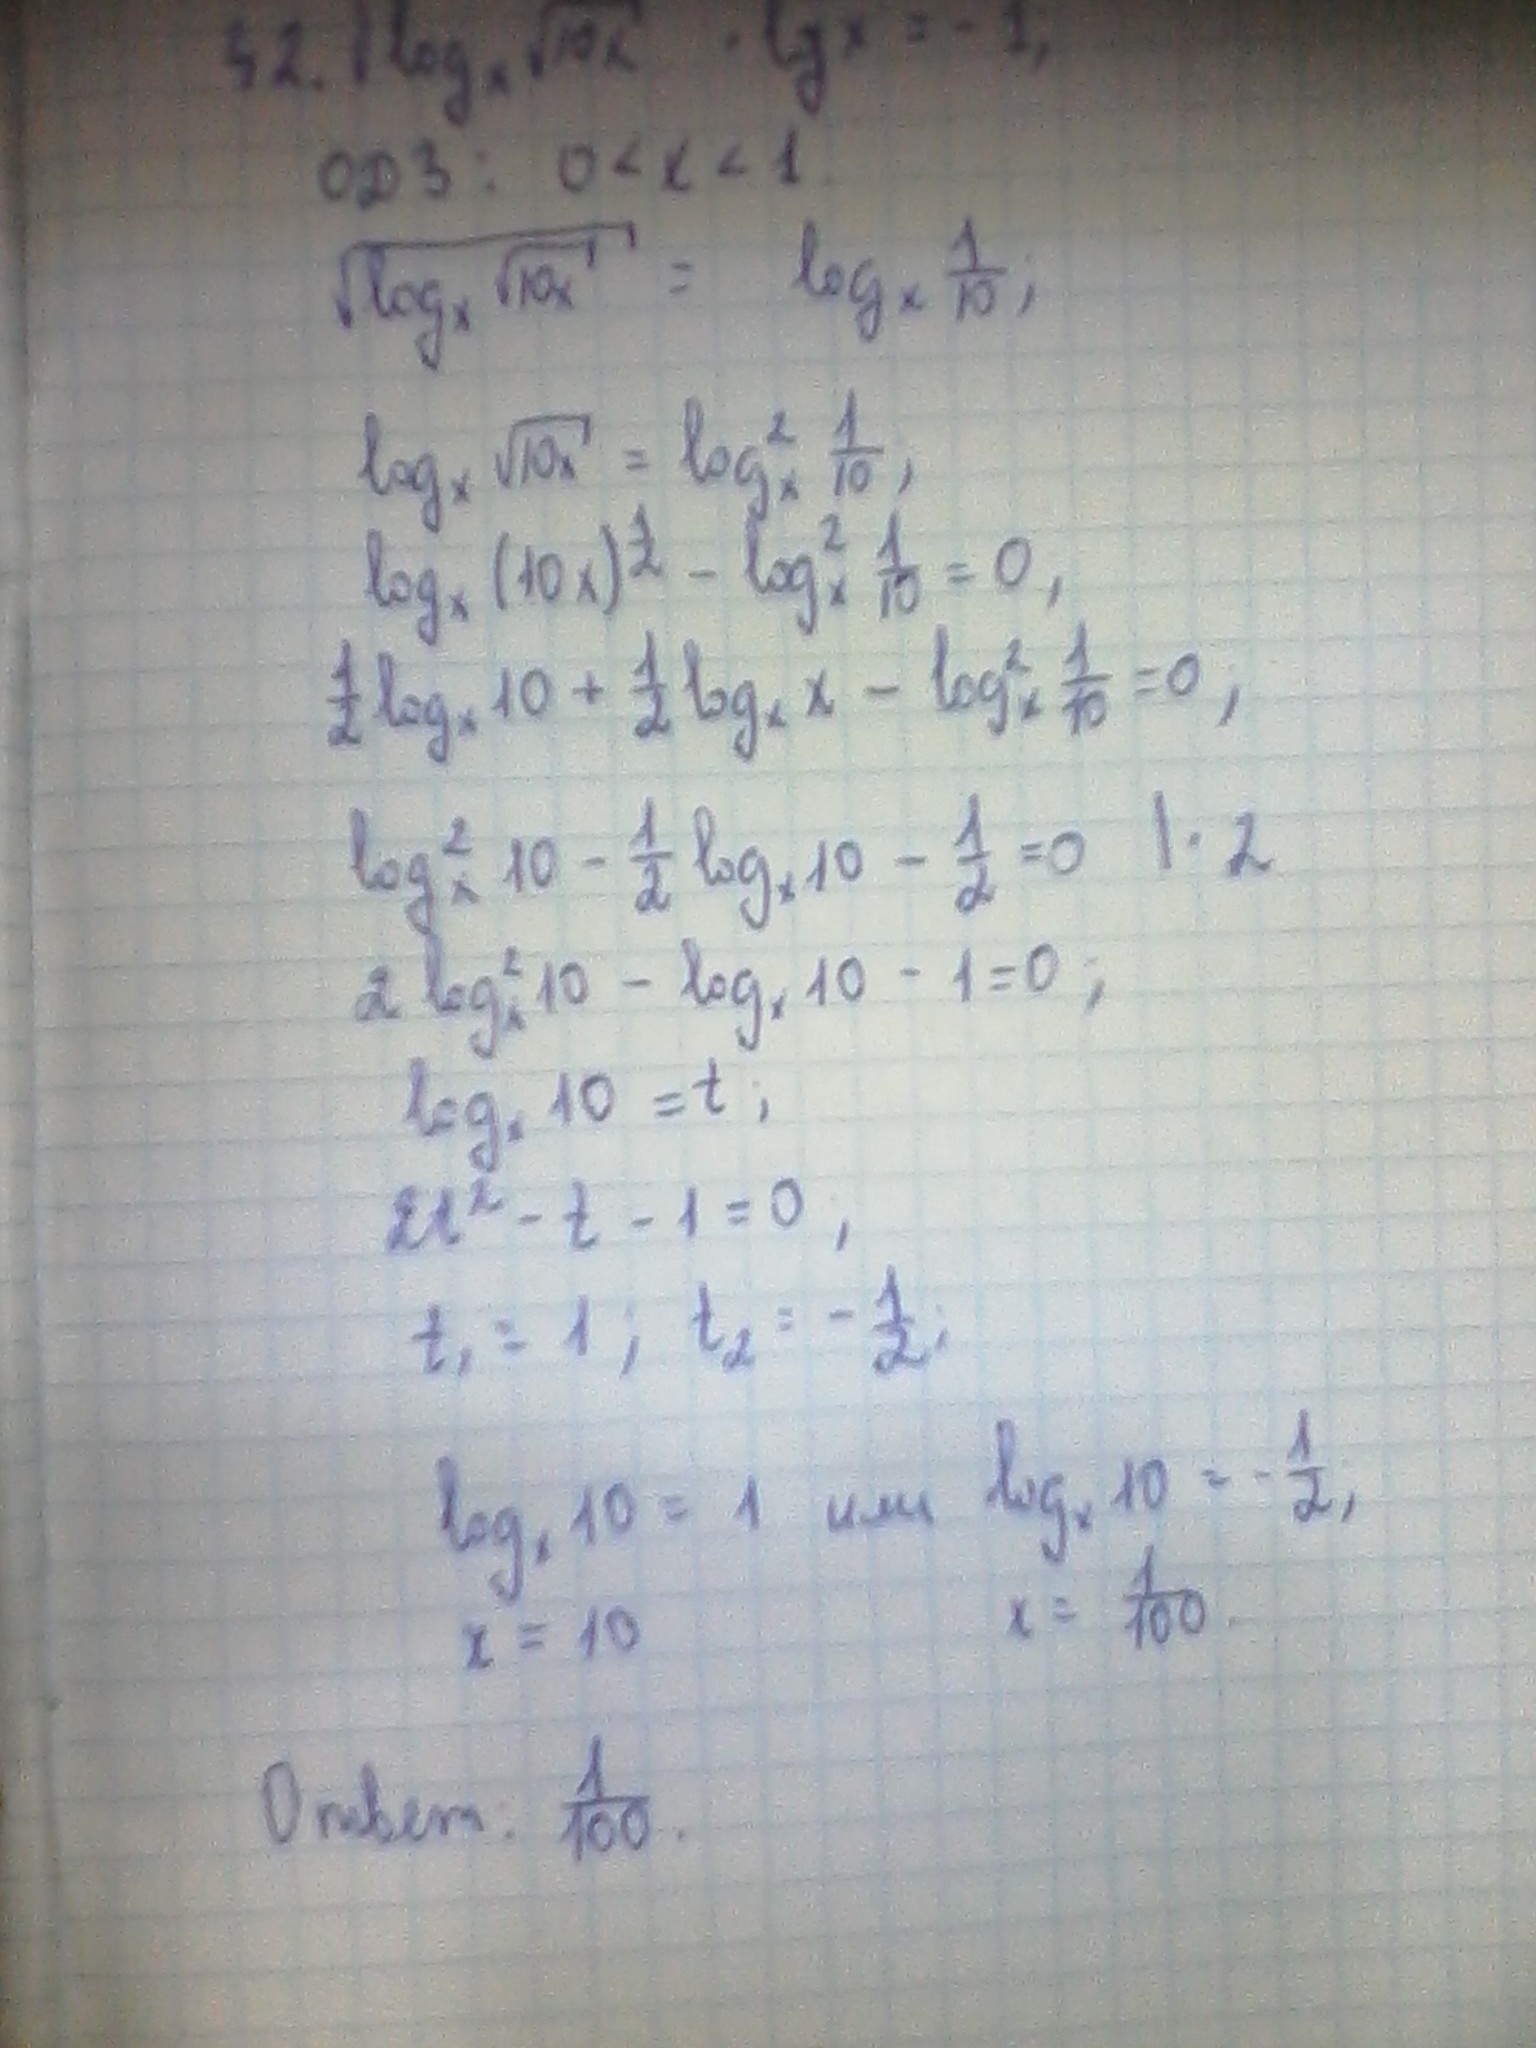 42. √log_x √10x · lg x = -1;
ОДЗ: 0 < x < 1.
√log_x √10x = log_x 1/10;
log_x √10x = log²_x 1/10;
log_x (10x)^1/2 - log²_x 1/10 = 0;
1/2 log_x 10 + 1/2 log_x x - log²_x 1/10 = 0;
log²_x 10 - 1/2 log_x 10 - 1/2 = 0 | · 2
2 log²_x 10 - log_x 10 - 1 = 0;
log_x 10 = t;
2t² - t - 1 = 0;
t₁ = 1; t₂ = -1/2;
log_x 10 = 1 или log_x 10 = -1/2;
x = 10 x = 1/100.
Ответ: 1/100.